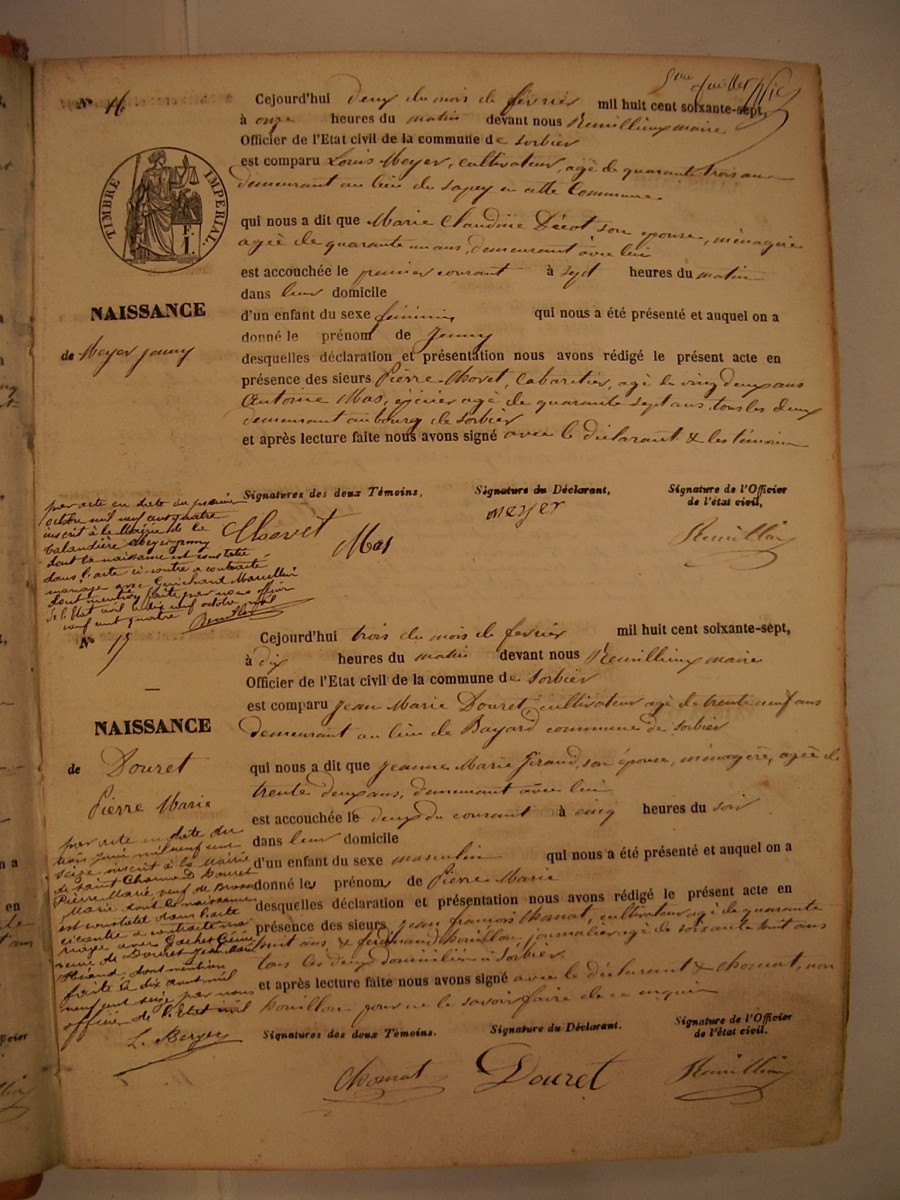 5me feuillet
N° 16
Cejourd'hui deux du mois de février mil huit cent soixante-sept,
à onze heures du matin devant nous Remillieux maire
Officier de l'Etat civil de la commune de Sorbier
est comparu Louis Meyer, cultivateur, agé de quarante trois ans
demeurant au lieu du Sapey en cette Commune
TIMBRE IMPERIAL
qui nous a dit que Marie Claudine Décot son épouse, ménagère
agée de quarante un ans, demeurant avec lui
est accouchée le premier courant à sept heures du matin
dans leur domicile
NAISSANCE
d'un enfant du sexe féminin qui nous a été présenté et auquel on a
donné le prénom de Jenny
de Meyer Jenny
desquelles déclaration et présentation nous avons rédigé le présent acte en
présence des sieurs Pierre Chovet, Cabaretier, agé de vingt deux ans
Antoine Mas, épicier agé de quarante sept ans, tous les deux
demeurant au bourg de Sorbier
et après lecture faite nous avons signé avec le déclarant & les témoins
Signatures des deux Témoins, Signature du Déclarant, Signature de l'Officier de l'état civil,
Chovet Mas meyer Remillieux
par acte en date du premier
octobre mil neuf cent quatre
inscrit à la Mairie de la
Talaudière Meyer Jenny
dont la naissance est constatée
dans l'acte ci-contre a contracté
mariage avec Guichard Marcellin
dont mention faite par nous officier
de l'Etat civil le dix neuf octobre
neuf cent quatre
N° 17
Cejourd'hui trois du mois de février mil huit cent soixante-sept,
à dix heures du matin devant nous Remillieux maire
Officier de l'Etat civil de la commune de Sorbier
est comparu Jean Marie Douret, cultivateur agé de trente neuf ans
demeurant au lieu de Bayard commune de Sorbier
NAISSANCE
de Douret
Pierre Marie
qui nous a dit que Jeanne Marie Giraud, son épouse, ménagère, agée de
trente deux ans, demeurant avec lui
est accouchée le deux du courant à cinq heures du soir
dans leur domicile
d'un enfant du sexe masculin qui nous a été présenté et auquel on a
donné les prénoms de Pierre Marie
desquelles déclaration et présentation nous avons rédigé le présent acte en
présence des sieurs Jean françois Chomat, cultivateur agé de quarante
huit ans, & ferdinand Bouillon, journalier agé de soixante huit ans
tous les deux domiciliés à Sorbier
et après lecture faite nous avons signé avec le déclarant & Chomat, non
Bouillon pour ne le savoir faire de ce enquis
par acte en date du
trois juin mil neuf cent
seize inscrit à la Mairie
de Saint Chamond Douret
Pierre Marie, veuf de
Marie dont la naissance
est constatée dans l'acte
ci contre a contracté ma
riage avec
veuve de Douret Jean
dont mention
faite à dix août mil
neuf cent seize par nous
officier de l'Etat civil
L. Berger
Signatures des deux Témoins. Signature du Déclarant. Signature de l'Officier de l'état civil.
Chomat Douret Remillieux